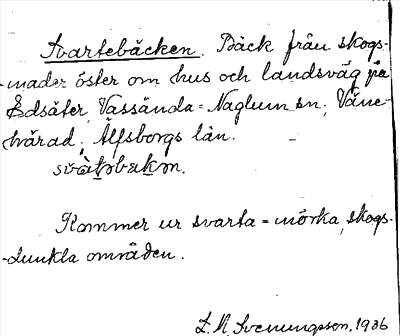 Svartebäcken. Bäck från skogs-
-mader öster om hus och landsväg på
Edsäter, Vassända=Naglum sn, Väne
härad, Älfsborgs län.
Kommer ur svarta = mörka, skogs-
-dunkla områden.
L. M. Svenungsson, 1936